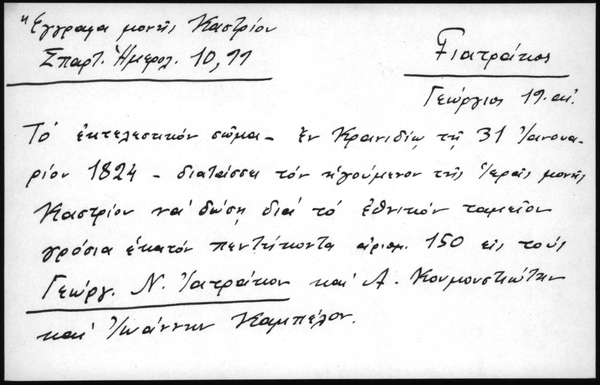 "Έγγραφα μονής Καστρίου
Σπαρτ. Ημερολ. 10, 11
Γιατράκος
Γεώργιος 19. αι.
Τό ἐκτελεστικόν σῶμα - ἐν Κρανιδίῳ τῇ 31 Ἰανουα-
ρίου 1824 - διατάσσει τόν ἡγούμενον τῆς Ἱερᾶς μονῆς
Καστρίου νά δώσῃ διά τό ἐθνικόν ταμεῖον
γρόσια ἑκατόν πεντήκοντα ἀριθμ. 150 εἰς τούς
Γεώργ. Ν. Ἰατράκον καί Α. Κουμουστιώτην
καί Ἰωάννην Καμπέλον.